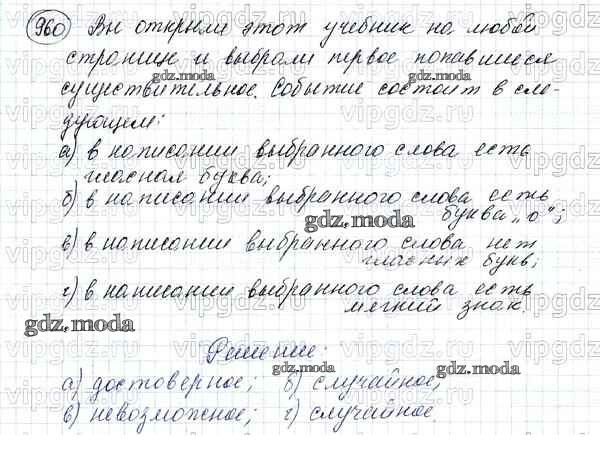 960 Вы открыли этот учебник на любой
странице и выбрали первое попавшееся
существительное. Событие состоит в сле-
дующем:
а) в написании выбранного слова есть
гласная буква;
б) в написании выбранного слова есть
буква „о“;
в) в написании выбранного слова нет
гласных букв;
г) в написании выбранного слова есть
мягкий знак.
gdz.moda
Решение:
а) достоверное; б) случайное;
в) невозможное; г) случайное.